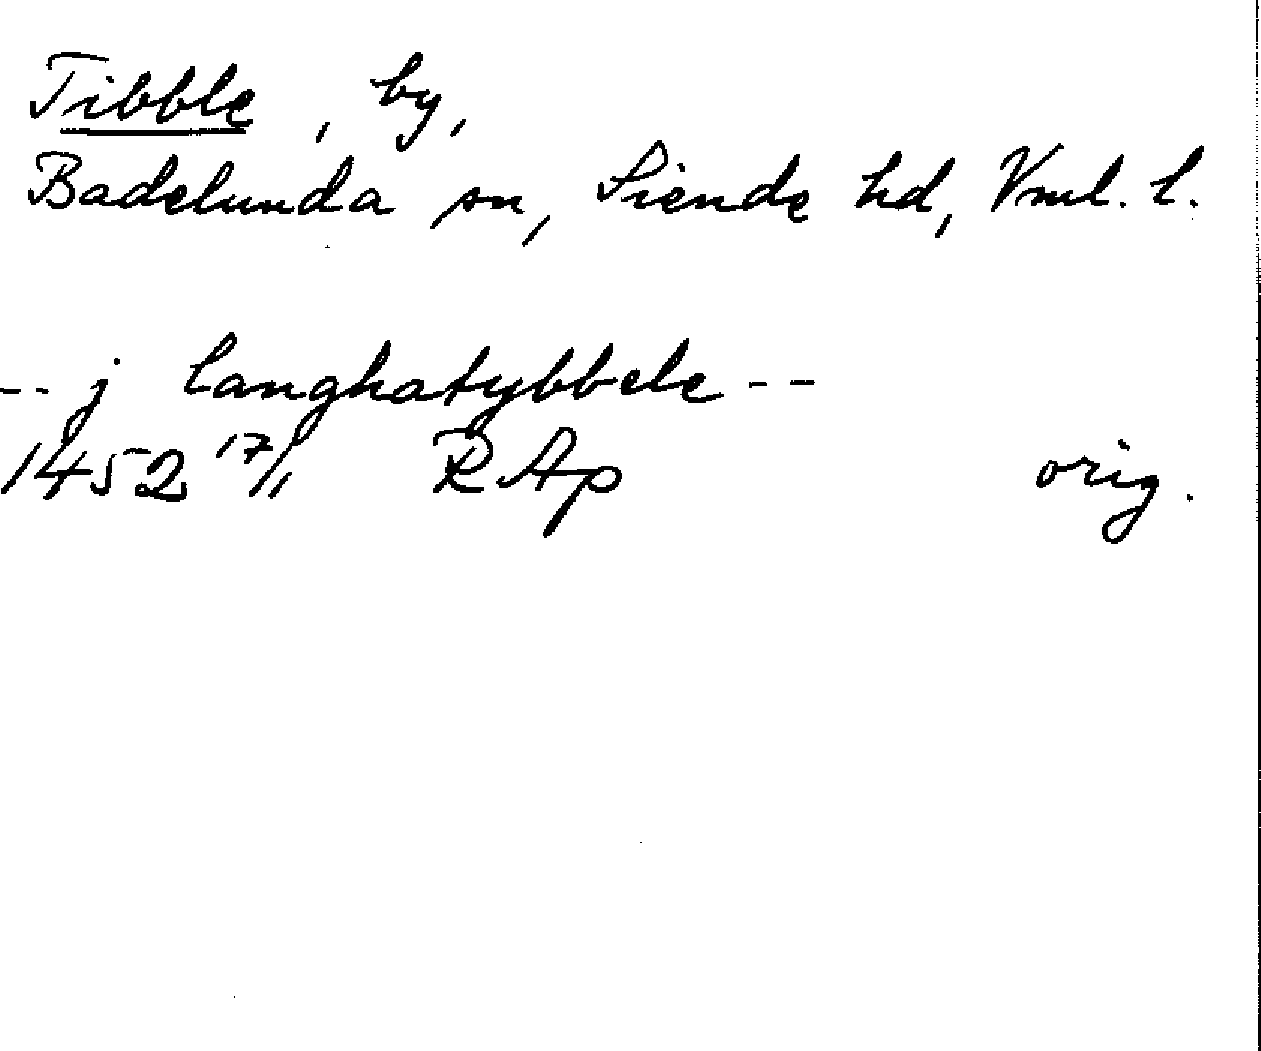 Tibble, by,
Badelunda sn, Siende hd, Vml. l.
-- j langhatybbele --
1452 17/1 RAp orig.